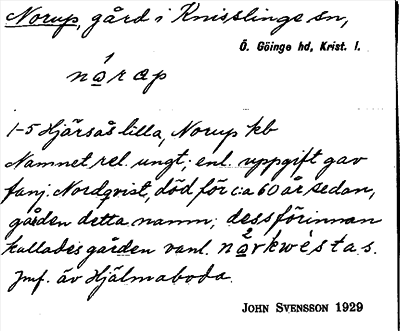 Norup, gård i Knisslinge sn,
Ö. Göinge hd, Krist. l.
nárap
1-5 Hjärsås lilla, Norup kb
Namnet rel. ungt; enl. uppgift gav
fanj. Nordqvist, död för c:a 60 år sedan,
gården detta namn; dessförinnan
kallades gården vanl.
Jmf. äv Hjälmaboda.
JOHN SVENSSON 1929